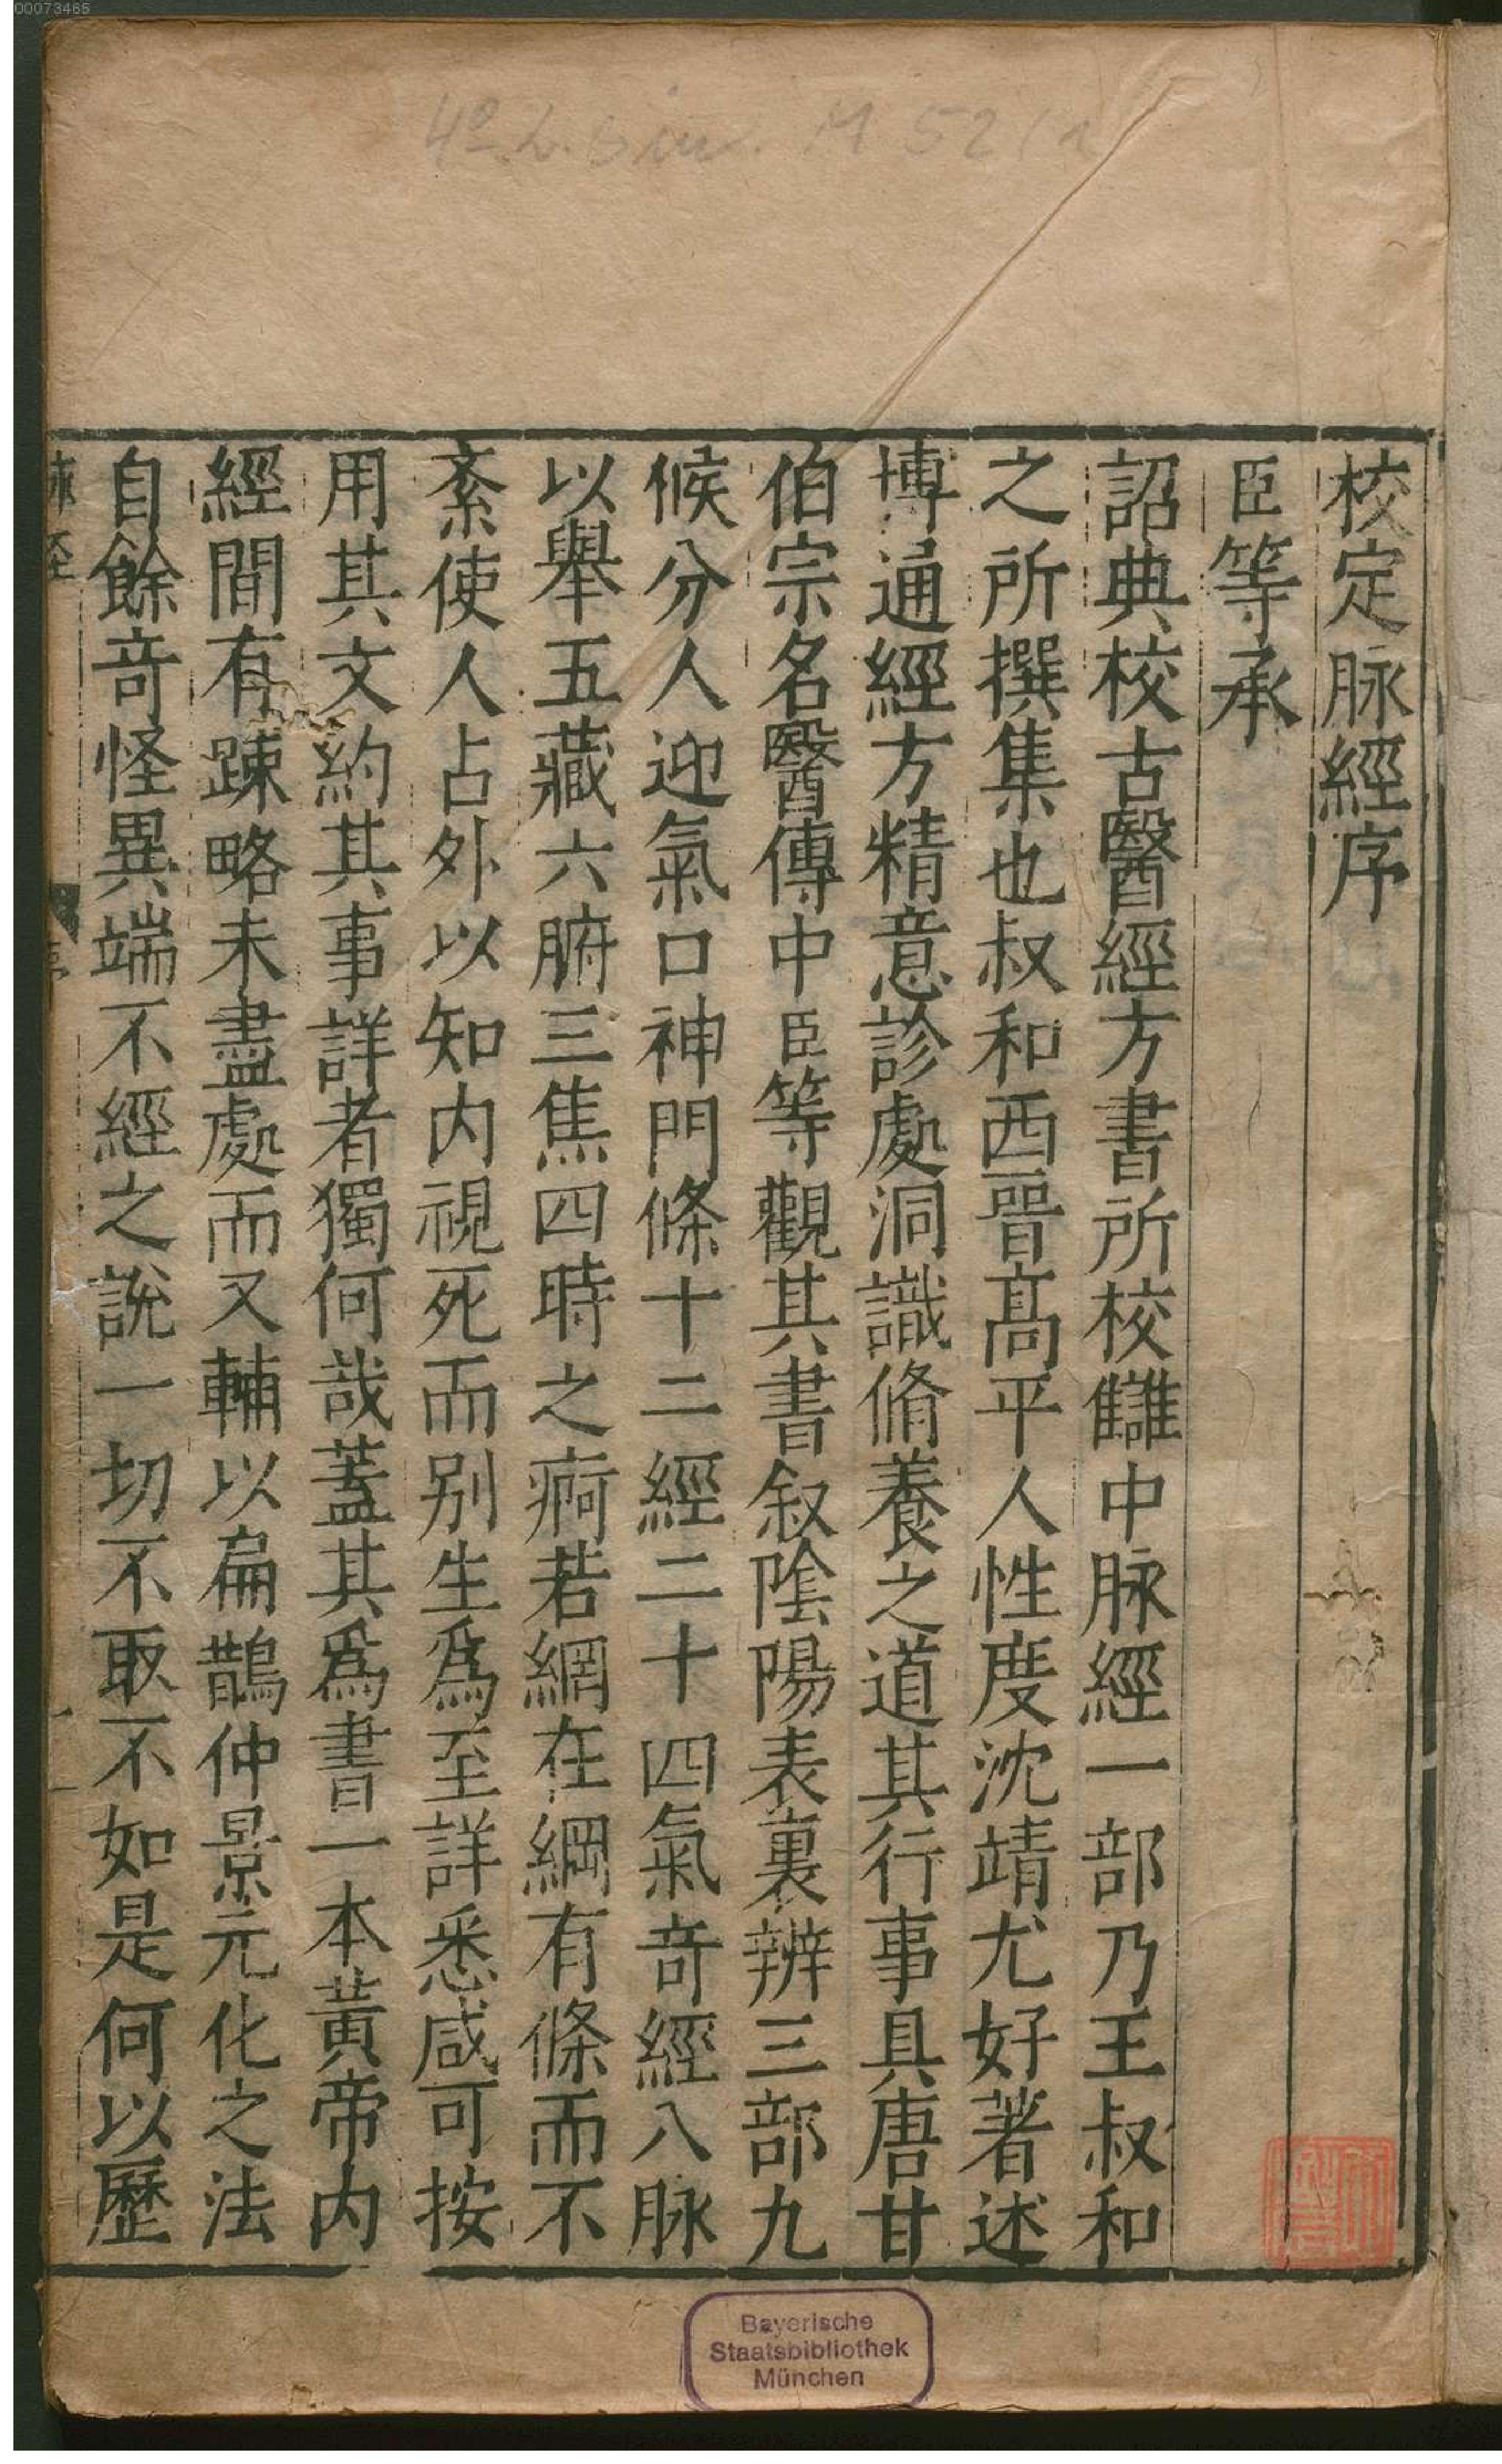 00073465
校定脉經序
臣等承
詔典校古醫經方書所校讎中脉經一部乃王叔和
之所撰集也叔和西晉髙平人性度沈靖尤好著述
博通經方精意診處洞識脩養之道其行事具唐甘
伯宗名醫傳中臣等觀其書叙陰陽表裏辨三部九
候分人迎氣口神門條十二經二十四氣竒經八脉
以舉五藏六腑三焦四時之痾若網在綱有條而不
紊使人占外以知内視死而别生爲至詳悉咸可按
用其文約其事詳者獨何哉蓋其爲書一本黃帝内
經間有踈略未盡處而又輔以扁鵲仲景元化之法
自餘竒怪異端不經之說一切不取不如是何以歷
Bayerische
Staatsbibliothek
München